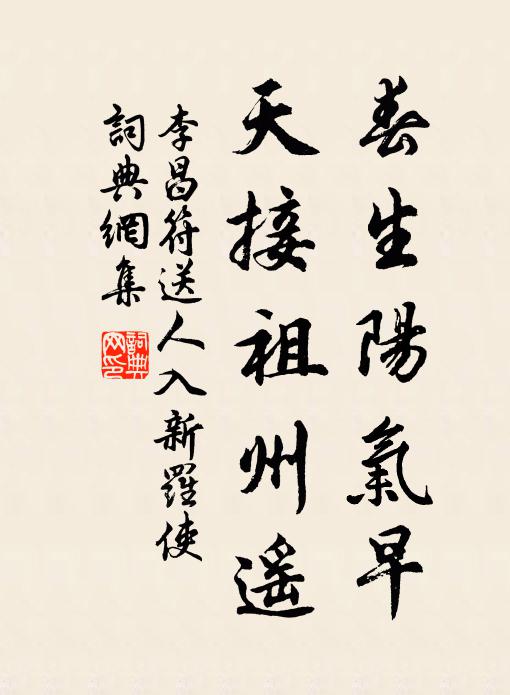 春生陽氣早
天接祖州遥
李昌符送人入新羅使
詞典網集
詞典
网印